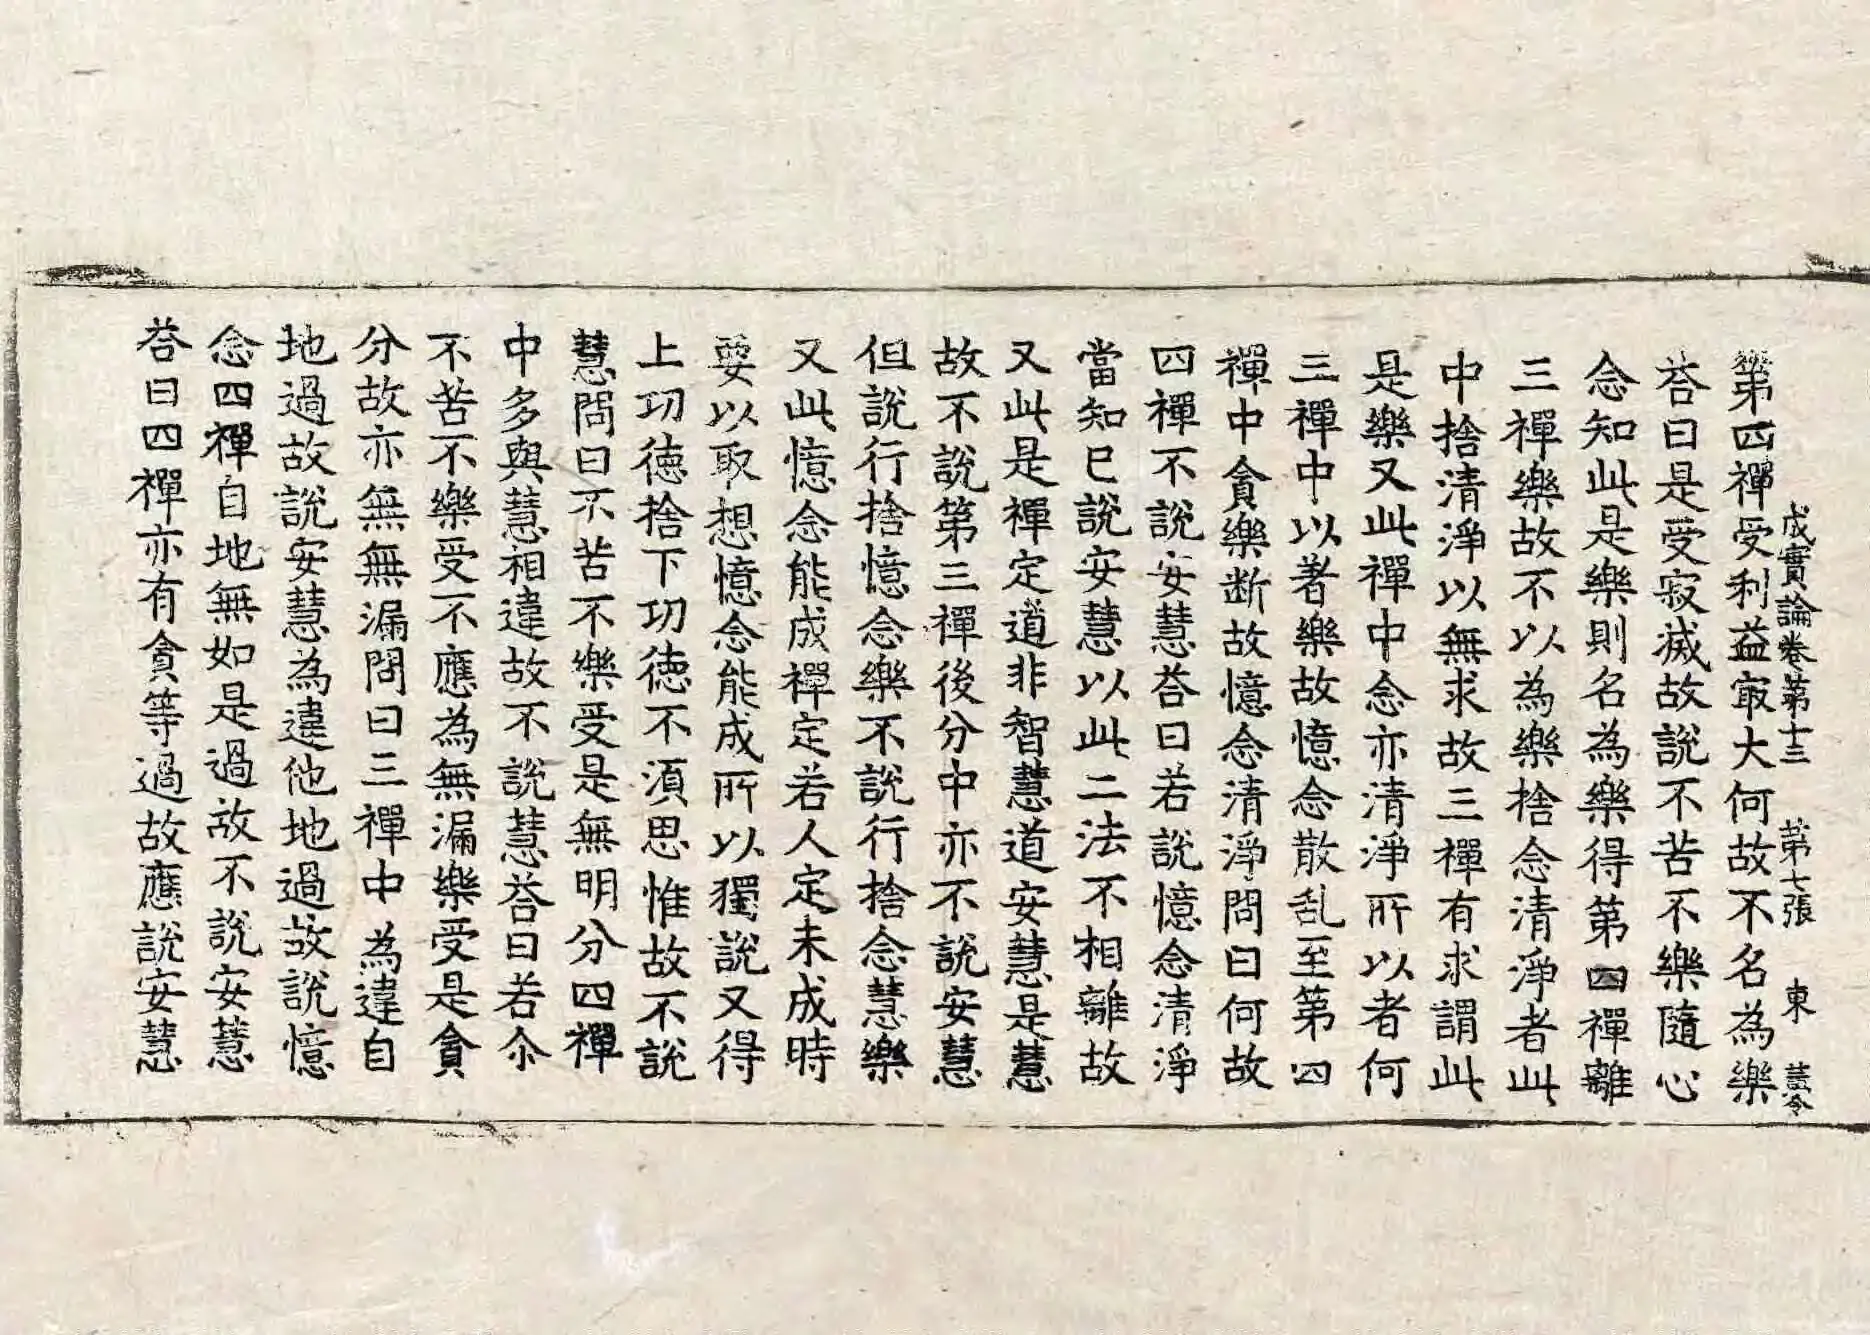 成實論卷第十三 第七張 東
第四禪受利益㝡大何故不名為樂
荅曰是受寂滅故說不苦不樂隨心
念知此是樂則名為樂得第四禪離
三禪樂故不以為樂捨念清淨者此
中捨清淨以無求故三禪有求謂此
是樂又此禪中念亦清淨所以者何
三禪中以著樂故憶念散乱至第四
禪中貪樂断故憶念清淨問曰何故
四禪不說安慧荅曰若說憶念清淨
當知已說安慧以此二法不相離故
又此是禪定道非智慧道安慧是慧
故不說第三禪後分中亦不說安慧
但說行捨憶念樂不說行捨念慧樂
又此憶念能成禪定若人定未成時
要以取想憶念能成所以獨說又得
上功德捨下功德不須思惟故不說
慧問曰不苦不樂受是無明分四禪
中多與慧相違故不說慧荅曰若尒
不苦不樂受不應為無漏樂受是貪
分故亦無無漏問曰三禪中為違自
地過故說安慧為違他地過故說憶
念四禪自地無如是過故不說安慧
荅曰四禪亦有貪等過故應說安慧